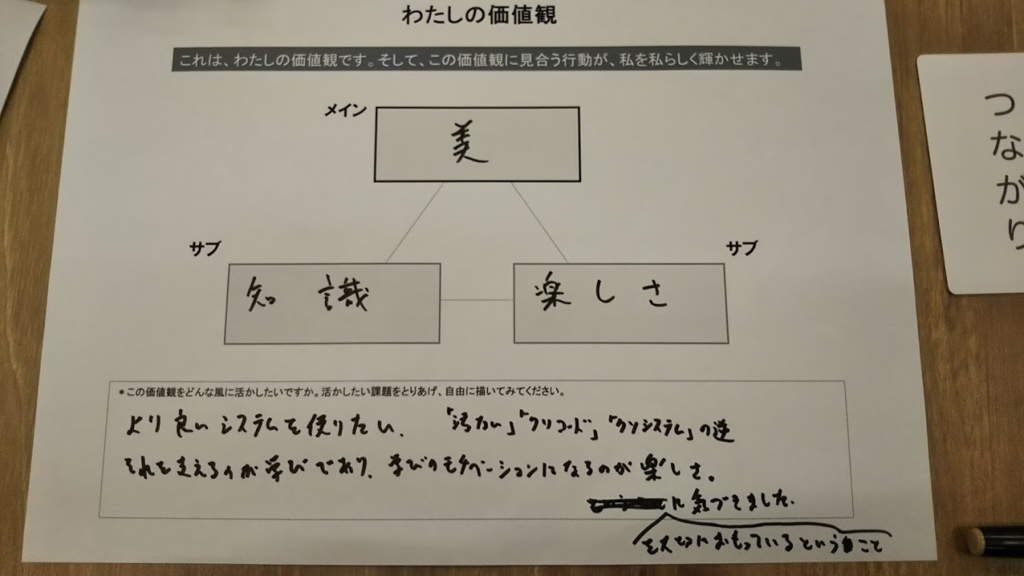 わたしの価値観
これは、わたしの価値観です。そして、この価値観に見合う行動が、私を私らしく輝かせます。
メイン
美
サブ
サブ
知識
楽しさ
*この価値観をどんな風に活かしたいですか。活かしたい課題をとりあげ、自由に描いてみてください。
より良いシステムを作りたい. 「汚ない」「クソコード」「クソシステム」の逆
それを支えるのが学びであり、学びのモチベーションになるのが楽しさ。
に気づきました.
を大切におもっているということ
つながり